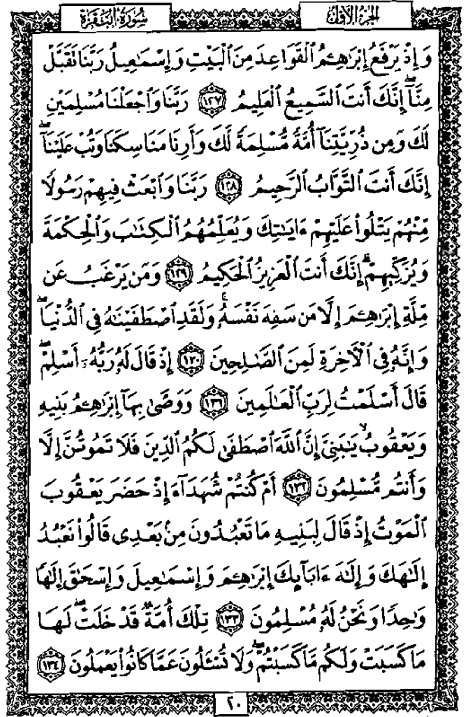 سُورَةُ البَقَرَةِ
الجُزءُ الأوّلُ
وَإِذْ يَرْفَعُ إِبْرَٰهِۦمُ ٱلْقَوَاعِدَ مِنَ ٱلْبَيْتِ وَإِسْمَٰعِيلُ رَبَّنَا تَقَبَّلْ
مِنَّآ ۖ إِنَّكَ أَنتَ ٱلسَّمِيعُ ٱلْعَلِيمُ ١٢٧ رَبَّنَا وَٱجْعَلْنَا مُسْلِمَيْنِ
لَكَ وَمِن ذُرِّيَّتِنَآ أُمَّةً مُّسْلِمَةً لَّكَ وَأَرِنَا مَنَاسِكَنَا وَتُبْ عَلَيْنَآ ۖ
إِنَّكَ أَنتَ ٱلتَّوَّابُ ٱلرَّحِيمُ ١٢٨ رَبَّنَا وَٱبْعَثْ فِيهِمْ رَسُولًا
مِّنْهُمْ يَتْلُوا۟ عَلَيْهِمْ ءَايَٰتِكَ وَيُعَلِّمُهُمُ ٱلْكِتَٰبَ وَٱلْحِكْمَةَ
وَيُزَكِّيهِمْ ۚ إِنَّكَ أَنتَ ٱلْعَزِيزُ ٱلْحَكِيمُ ١٢٩ وَمَن يَرْغَبُ عَن
مِّلَّةِ إِبْرَٰهِۦمَ إِلَّا مَن سَفِهَ نَفْسَهُۥ ۚ وَلَقَدِ ٱصْطَفَيْنَٰهُ فِى ٱلدُّنْيَا ۖ
وَإِنَّهُۥ فِى ٱلْءَاخِرَةِ لَمِنَ ٱلصَّٰلِحِينَ ١٣٠ إِذْ قَالَ لَهُۥ رَبُّهُۥٓ أَسْلِمْ ۖ
قَالَ أَسْلَمْتُ لِرَبِّ ٱلْعَٰلَمِينَ ١٣١ وَوَصَّىٰ بِهَآ إِبْرَٰهِۦمُ بَنِيهِ
وَيَعْقُوبُ يَٰبَنِىَّ إِنَّ ٱللَّهَ ٱصْطَفَىٰ لَكُمُ ٱلدِّينَ فَلَا تَمُوتُنَّ إِلَّا
وَأَنتُم مُّسْلِمُونَ ١٣٢ أَمْ كُنتُمْ شُهَدَآءَ إِذْ حَضَرَ يَعْقُوبَ
ٱلْمَوْتُ إِذْ قَالَ لِبَنِيهِ مَا تَعْبُدُونَ مِنۢ بَعْدِى قَالُوا۟ نَعْبُدُ
إِلَٰهَكَ وَإِلَٰهَ ءَابَآئِكَ إِبْرَٰهِۦمَ وَإِسْمَٰعِيلَ وَإِسْحَٰقَ إِلَٰهًا
وَٰحِدًا وَنَحْنُ لَهُۥ مُسْلِمُونَ ١٣٣ تِلْكَ أُمَّةٌ قَدْ خَلَتْ ۖ لَهَا
مَا كَسَبَتْ وَلَكُم مَّا كَسَبْتُمْ ۖ وَلَا تُسْـَٔلُونَ عَمَّا كَانُوا۟ يَعْمَلُونَ ١٣٤
٢٠